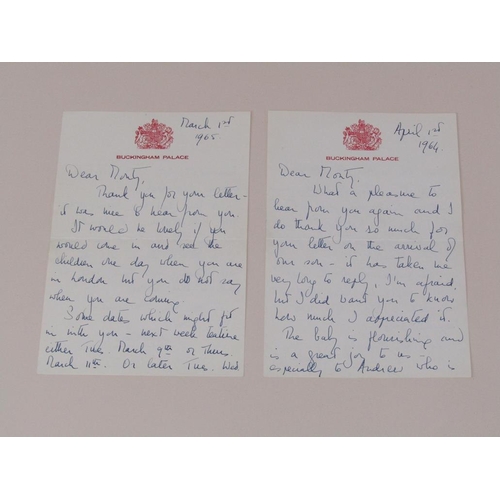 March 1st
1965
BUCKINGHAM PALACE
Dear Monty,
Thank you for your letter -
it was nice to hear from you.
It would be lovely if you
would come in and see the
children one day when you are
in London but you do not say
when you are coming.
Some dates which might fit
in with you - next week teatime
either Tues. March 9th or Thurs.
March 11th. Or later Tues. Wed
April 1st
1964
BUCKINGHAM PALACE
Dear Monty,
What a pleasure to
hear from you again and I
do thank you so much for
your letter on the arrival of
our son - it has taken me
very long to reply, I'm afraid,
but I did want you to know
how much I appreciated it.
The baby is flourishing and
is a great joy to us -
especially to Andrew who is